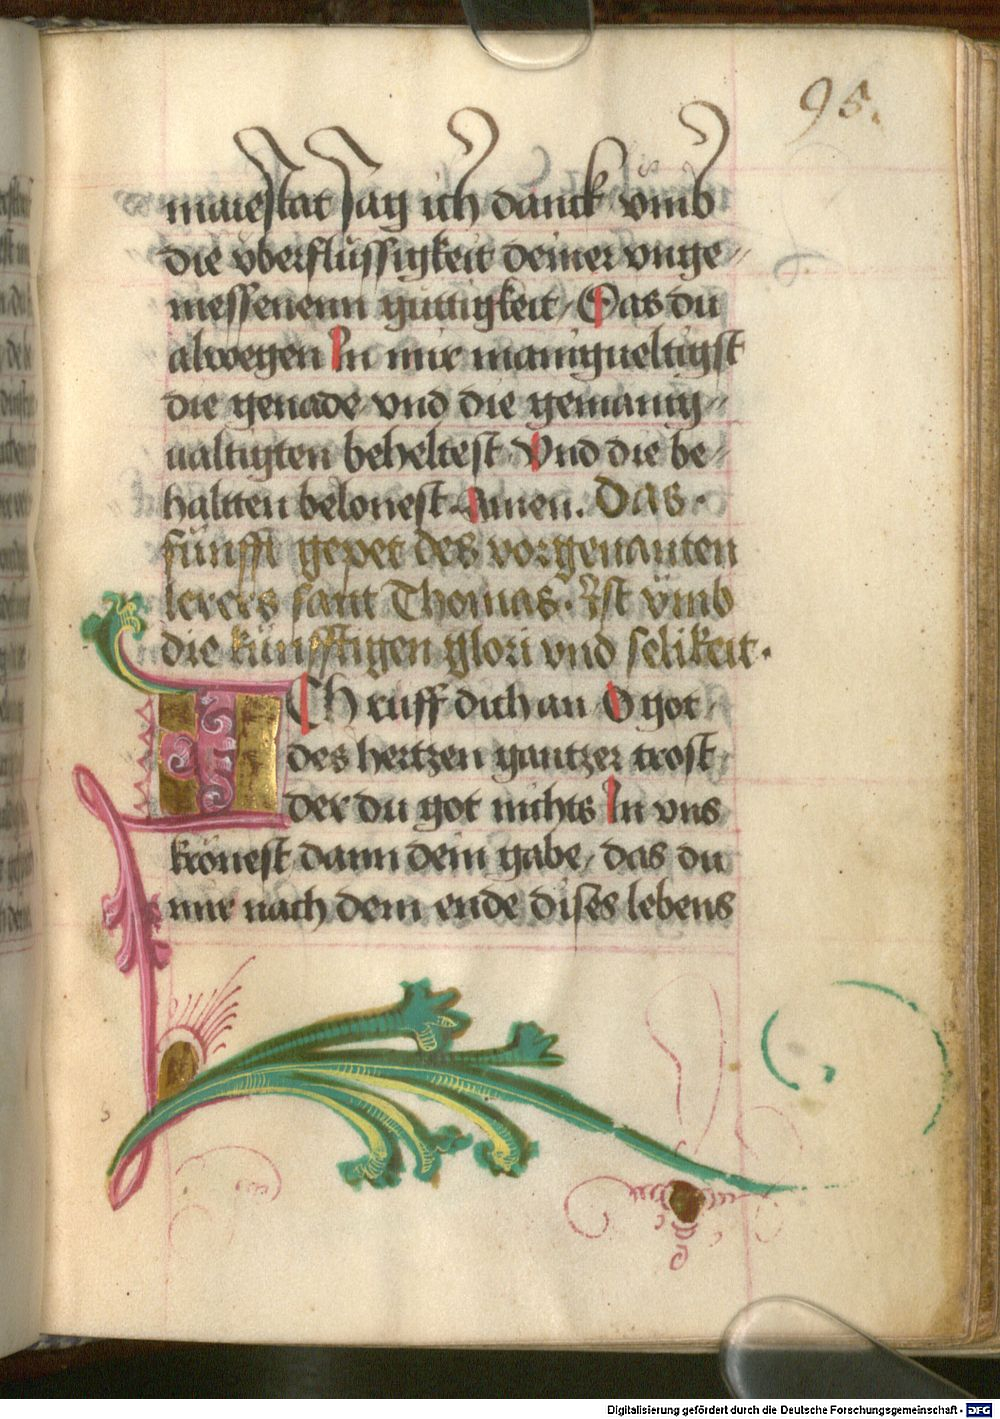 95.
maiestat sag ich danck vmb
die vberflussigkeit deiner vnge⸗
messenenn guttigkeit / Das du
alwegen In mir manigueltigst
die genade vnd die gemanig⸗
ualtigten beheltest Vnd die be⸗
haltten belonest Amen. Das
fünfft gepet des vorgenanten
lerers sant Thomas. Ist vmb
die künfftigen glori vnd selikeit.
ICh ruff dich an O got /
des hertzen gantzer trost /
der du got nichts In vns
krönest dann dein gabe / das du
mir nach dem ende dises lebens
Digitalisierung gefördert durch die Deutsche Forschungsgemeinschaft - DFG